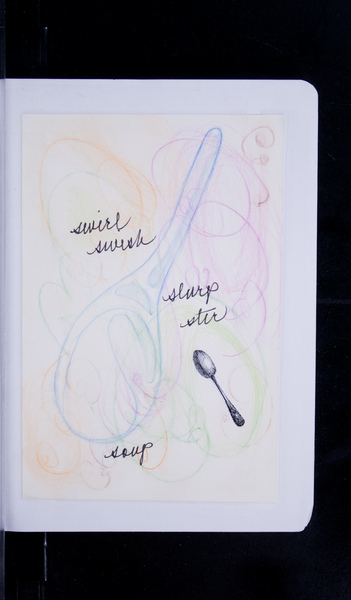 swirl
swish
slurp
stir
soup